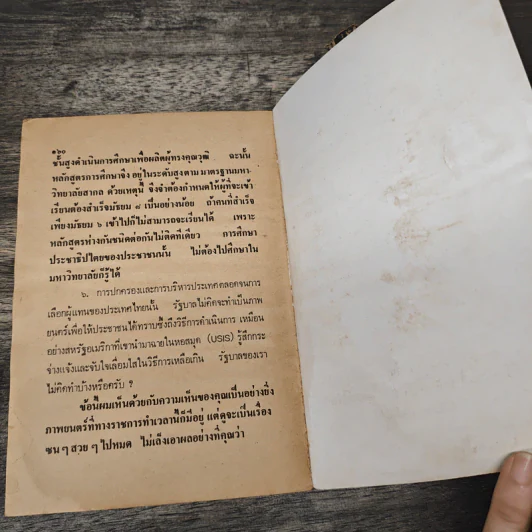 ๑๖๐
ชั้นสูงดำเนินการศึกษาเพื่อผลิตผู้ทรงคุณวุฒิ ฉะนั้น
หลักสูตรการศึกษาจึงอยู่ในระดับสูงตามมาตรฐานมหา-
วิทยาลัยสากล ด้วยเหตุนี้ จึงจำต้องกำหนดให้ผู้ที่จะเข้า
เรียนต้องสำเร็จมัธยม ๘ เป็นอย่างน้อย ถ้าคนที่สำเร็จ
เพียงมัธยม ๖ เข้าไปก็ไม่สามารถจะเรียนได้ เพราะ
หลักสูตรห่างกันชนิดต่อกันไม่ติดทีเดียว การศึกษา
ประชาธิปไตยของประชาชนนั้น ไม่ต้องไปศึกษาใน
มหาวิทยาลัยก็รู้ได้
๖. การปกครองและการบริหารประเทศตลอดจนการ
เลือกผู้แทนของประเทศไทยนั้น รัฐบาลไม่คิดจะทำเป็นภาพ
ยนตร์เพื่อให้ประชาชนได้ทราบซึ้งถึงวิธีการดำเนินการ เหมือน
อย่างสหรัฐอเมริกาที่เขานำมาฉายในหอสมุด (USIS) รู้สึกกระ
จ่างแจ้งและจับใจเลื่อมใสในวิธีการเหลือเกิน รัฐบาลของเรา
ไม่คิดทำบ้างหรือครับ ?
ข้อนี้ผมเห็นด้วยกับความเห็นของคุณเป็นอย่างยิ่ง
ภาพยนตร์ที่ทางราชการทำเวลานี้ก็มีอยู่ แต่ดูจะเป็นเรื่อง
ซน ๆ สวย ๆ ไปหมด ไม่เล็งเอาผลอย่างที่คุณว่า